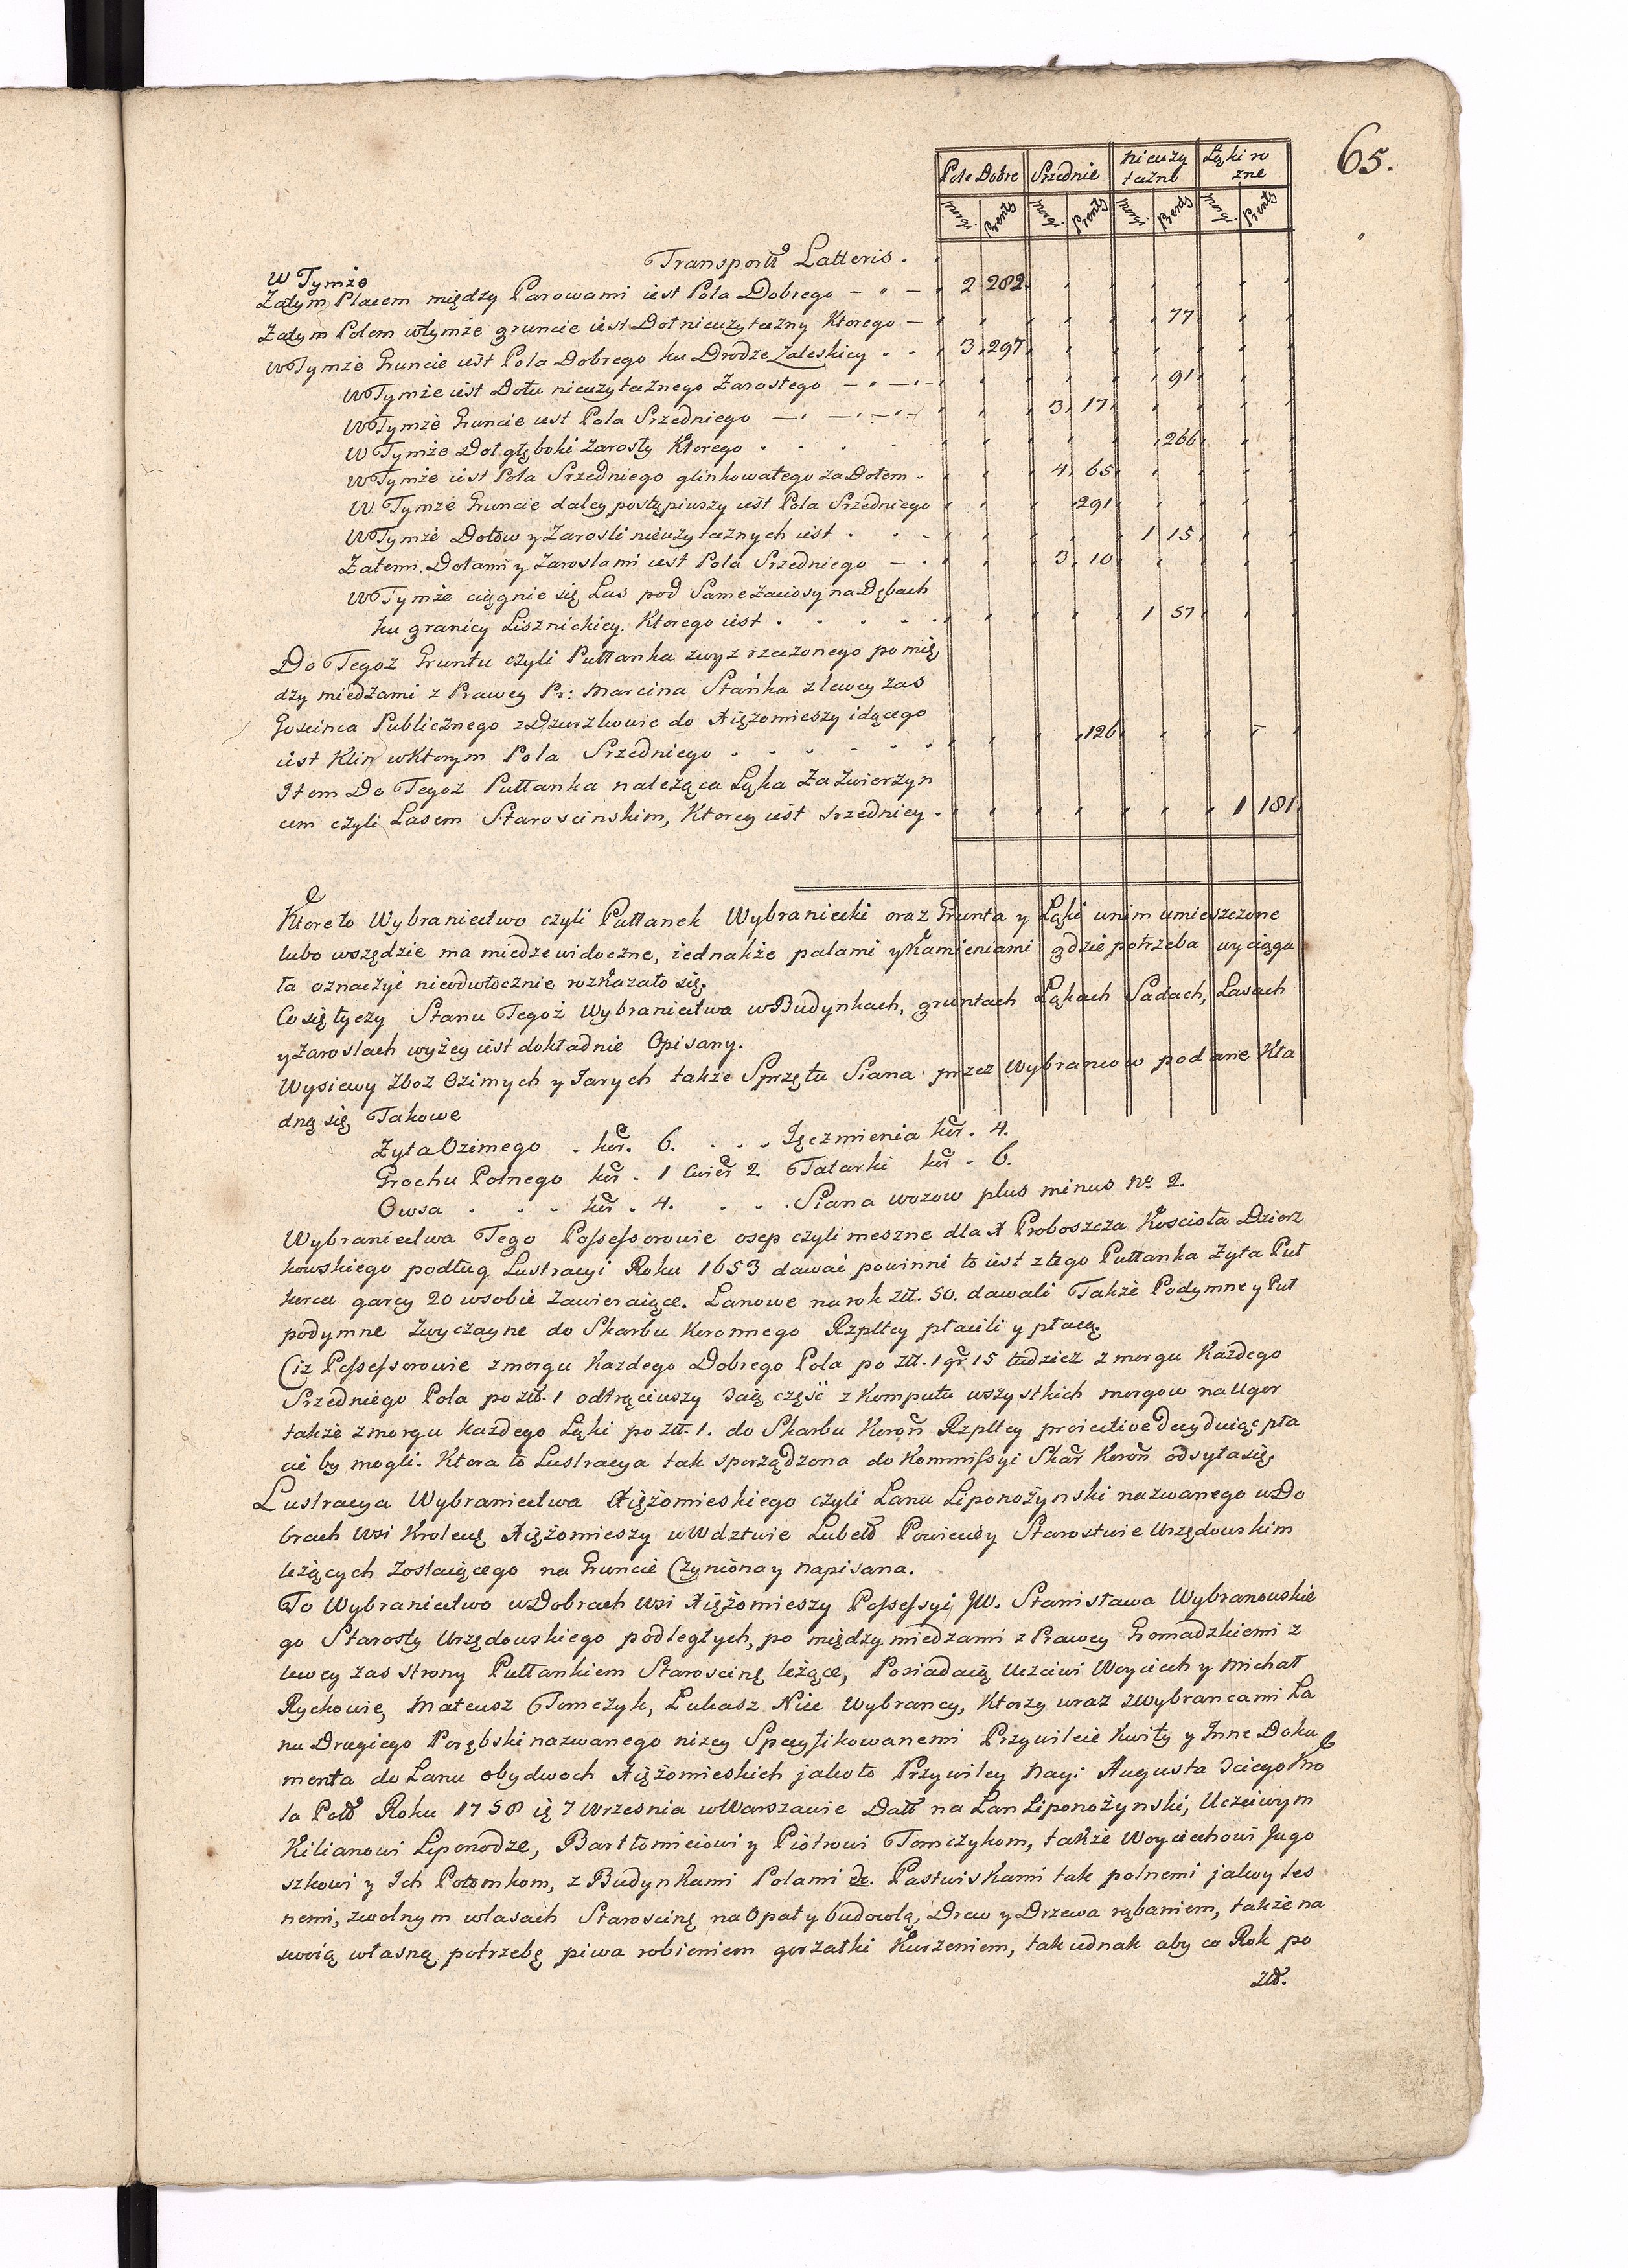 65.
Pole Dobre Srzednie nieuzy Łąki ro
teczne zne
morgi Prenty morgi Prenty morgi Prenty morgi Prenty
Transport Latteris .
W Tymże
Zatym Placem między Parowami iest Pola Dobrego — 2 282
Zatym Polem wtymże gruncie iest Doł nieuzyteczny Ktorego — 77
W Tymże Gruncie iest Pola Dobrego ku Drodze Zaleskiey . . 3 297
W Tymże iest Dołu nieuzytecznego Zarostego — 91
W Tymże Gruncie iest Pola Srzedniego — 3 17
W Tymże Doł głęboki zarosły Ktorego . . . 266
W Tymże iest Pola Srzedniego glinkowatego za Dołem . 4 65
W Tymże Gruncie daley postąpiwszy iest Pola Srzedniego 291
W Tymże Dołow y Zarosli nieuzytecznych iest . . . 1 15
Zatemi Dołami y Zaroslami iest Pola Srzedniego — 3 10
W Tymże ciągnie się Las pod Same Zaciosy na Dębach
ku granicy Lisznickiey. Ktorego iest . . . . . 1 57
Do Tegoz Gruntu czyli Pułłanka zwyz rzeczonego po mię
dzy miedzami z Prawey Pr: Marcina Stańka z lewey zas
Goscinca Publicznego z Dzurzkowic do Xiężomieszy idącego
iest Klin w Ktorym Pola Srzedniego . . . . . . 126
Item Do Tegoz Pułłanka należąca Łąka Za Zwierzyn
cem czyli Lasem Staroscinskim, Ktorey iest srzedniey . 1 181
Ktore to Wybraniectwo czyli Pułłanek Wybraniecki oraz Grunta y Łąki w nim umieszczone
lubo wszędzie ma miedze widoczne, iednakże palami y Kamieniami gdzie potrzeba wyciąga
ła oznaczyć nieodwłocznie rozkazało się.
Co się tyczy Stanu Tegoż Wybraniectwa w Budynkach, gruntach Łąkach Sadach, Lasach
y Zaroslach wyżey iest dokładnie Opisany.
Wysiewy Zboz Ozimych y Jarych także Sprzętu Siana przez Wybrancow podane Kła
dną się Takowe
Zyta Ozimego . kor. 6. . . . Jęczmienia kor. 4.
Grochu Polnego kor . 1 Cwier 2 Tatarki kor . 6.
Owsa . . . kor . 4. . . . Siana wozow plus minus No. 2.
Wybraniectwa Tego Possessorowie osep czyli meszne dla X Proboszcza Koscioła Dzierz
kowskiego podług Lustracyi Roku 1653 dawać powinni to iest z tego Pułłanka Zyta Puł
korca garcy 20 w sobie Zawieraiące. Lanowe na rok Złł. 50. dawali Także Podymne y Puł
podymne Zwyczayne do Skarbu Koronnego Rzpltey płacili y płacą.
Ciz Possessorowie z morgu Kazdego Dobrego Pola po Złł. 1 gr. 15 tudziez z morgu Każdego
Srzedniego Pola po zł. 1 odtrąciwszy 3cią część z Komputu wszystkich morgow na Ugor
także z morgu każdego Łąki po Złł. 1. do Skarbu Koron Rzpltey proiective decyduiąc pła
cić by mogli. Ktora to Lustracya tak sporządzona do Kommissyi Skar Koron odsyła się.
Lustracya Wybraniectwa Xiężomieskiego czyli Lanu Liponożynski nazwanego w Do
brach Wsi Krolewę Xiężomieszy w Wdztwie Lubelł Powiecie y Starostwie Urzędowskim
leżących Zostaiącego na Gruncie Czyniona y napisana.
To Wybraniectwo w Dobrach Wsi Xiężomieszy Possessyi JW. Stanisława Wybranowskie
go Starosty Urzędowskiego podległych, po między miedzami z Prawey Gromadzkiemi z
lewey zas strony Pułłankiem Staroscinę leżące, Posiadaią Uczciwi Woyciech y Michał
Rychowie, Mateusz Tomczyk, Łukasz Niec Wybrancy, Ktorzy wraz z Wybrancami La
nu Drugiego Porębski nazwanego nizey Specyfikowanemi Przywileie Kwity y Inne Doku
menta do Lanu obydwoch Xiężomieskich jako to Przywiley Nay: Augusta 3ciego Kro
la Polł Roku 1758 ię 7 Wrzesnia w Warszawie Dałł na Lan Liponożynski, Uczciwym
Kilianowi Liponodze, Bartłomieiowi y Piotrowi Tomczykom, także Woyciechowi Jugo
szkowi y Ich Potomkom, z Budynkami Polami &c. Pastwiskami tak polnemi jako y les
nemi, zwolnym w lasach Staroscinę na Opał y budowlą, Drew y Drzewa rąbaniem, także na
swoią własną potrzebę piwa robieniem gorzałki Kurzeniem, tak iednak aby co Rok po
Złł.